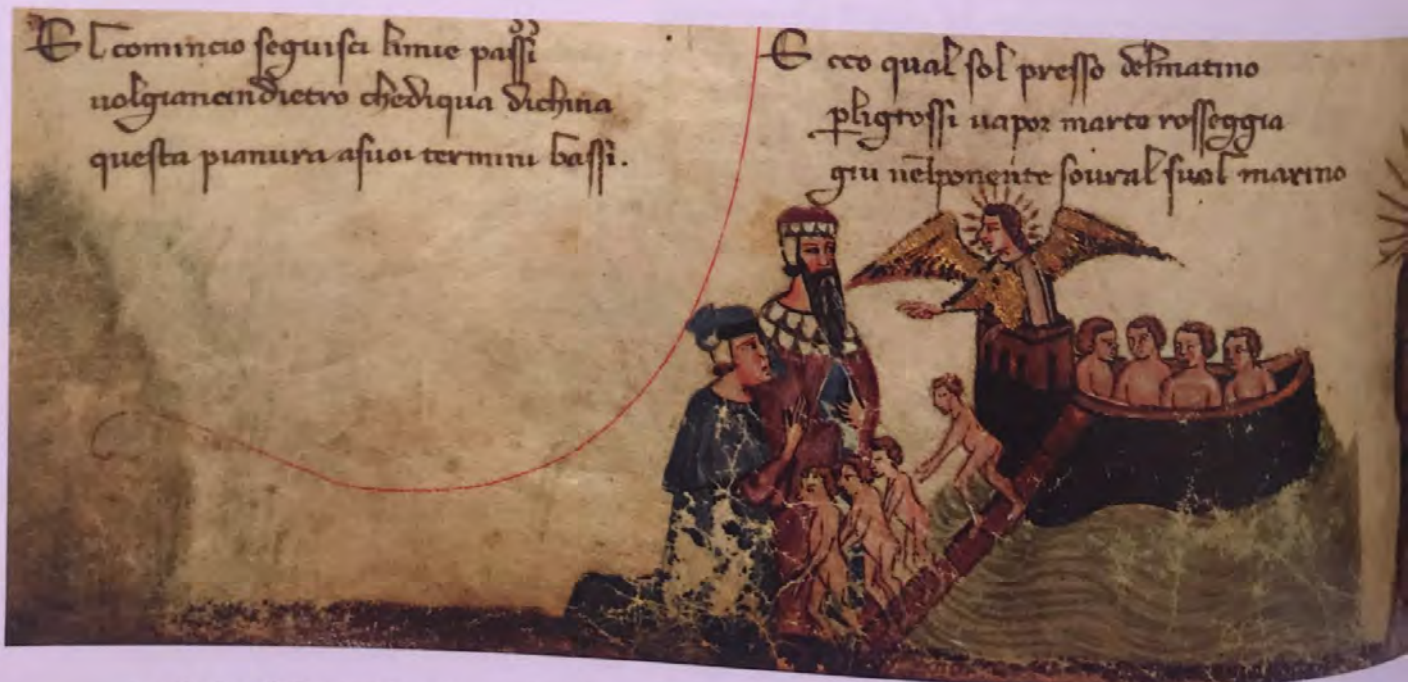 El comincio seguisci limie passi
uolgianciindietro chediqua dichina
questa pianura asuoi termini bassi.
Ecco qual sol presso delmatino
pligrossi uapor marte rosseggia
giu nelponente soural suol marino